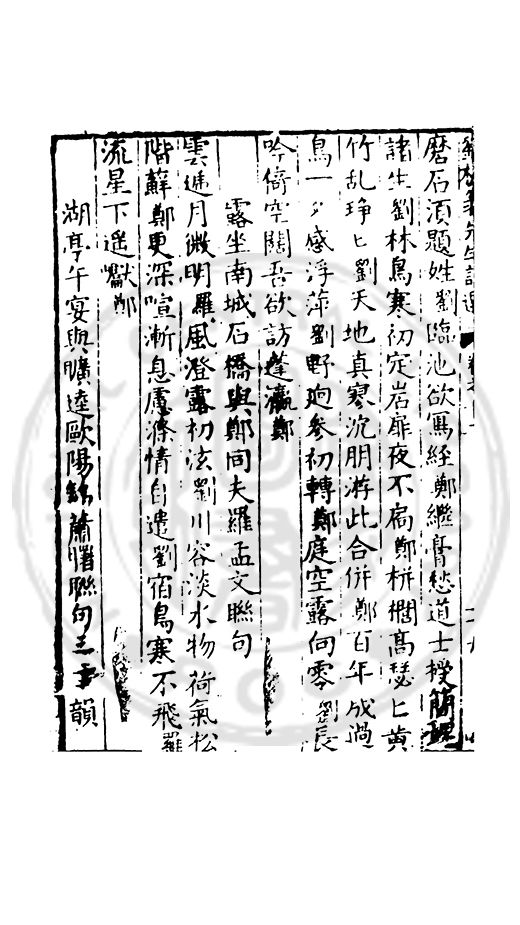 磨石須題姓劉臨池欲寫經鄭繼膏愁道士授簡
諸生劉林鳥寒初定岩扉夜不扃鄭栟櫚髙瑟匕黄
竹乱琤匕劉天地真寥泬朋游此合併鄭百年成過
鳥一夕感浮萍劉野逈參初轉鄭庭空露向零劉長
吟倚空闊吾欲訪蓬瀛鄭
露坐南城石橋與鄭同夫羅孟文聯句
雲遞月微明羅風澄露初泫劉川容淡水物荷氣松
階蘚鄭更深喧漸息慮滌情自遣劉宿鳥寒不飛羅
流星下遥巘鄭
湖亭午宴與曠逵歐陽鉉蕭㬙聯句三十韻